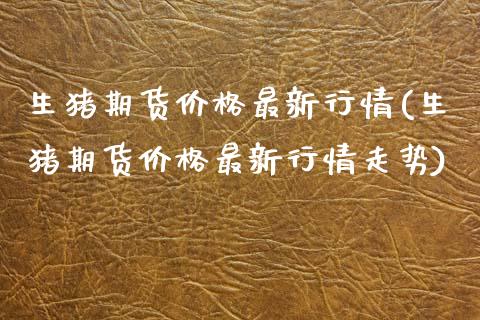 生猪期货价格最新行情(生
猪期货价格最新行情走势)